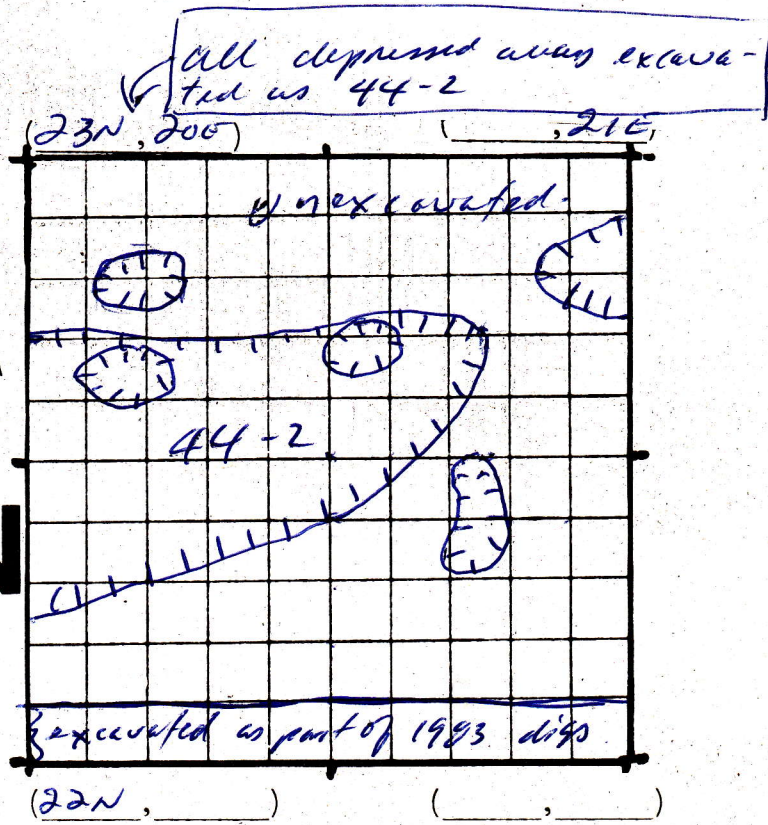 all depressed areas excava-
ted as 44-2
(23N, 20E) ( ,21E,
Unexcavated.
44-2
excavated as part of 1983 digs
(22N, ) ( , )